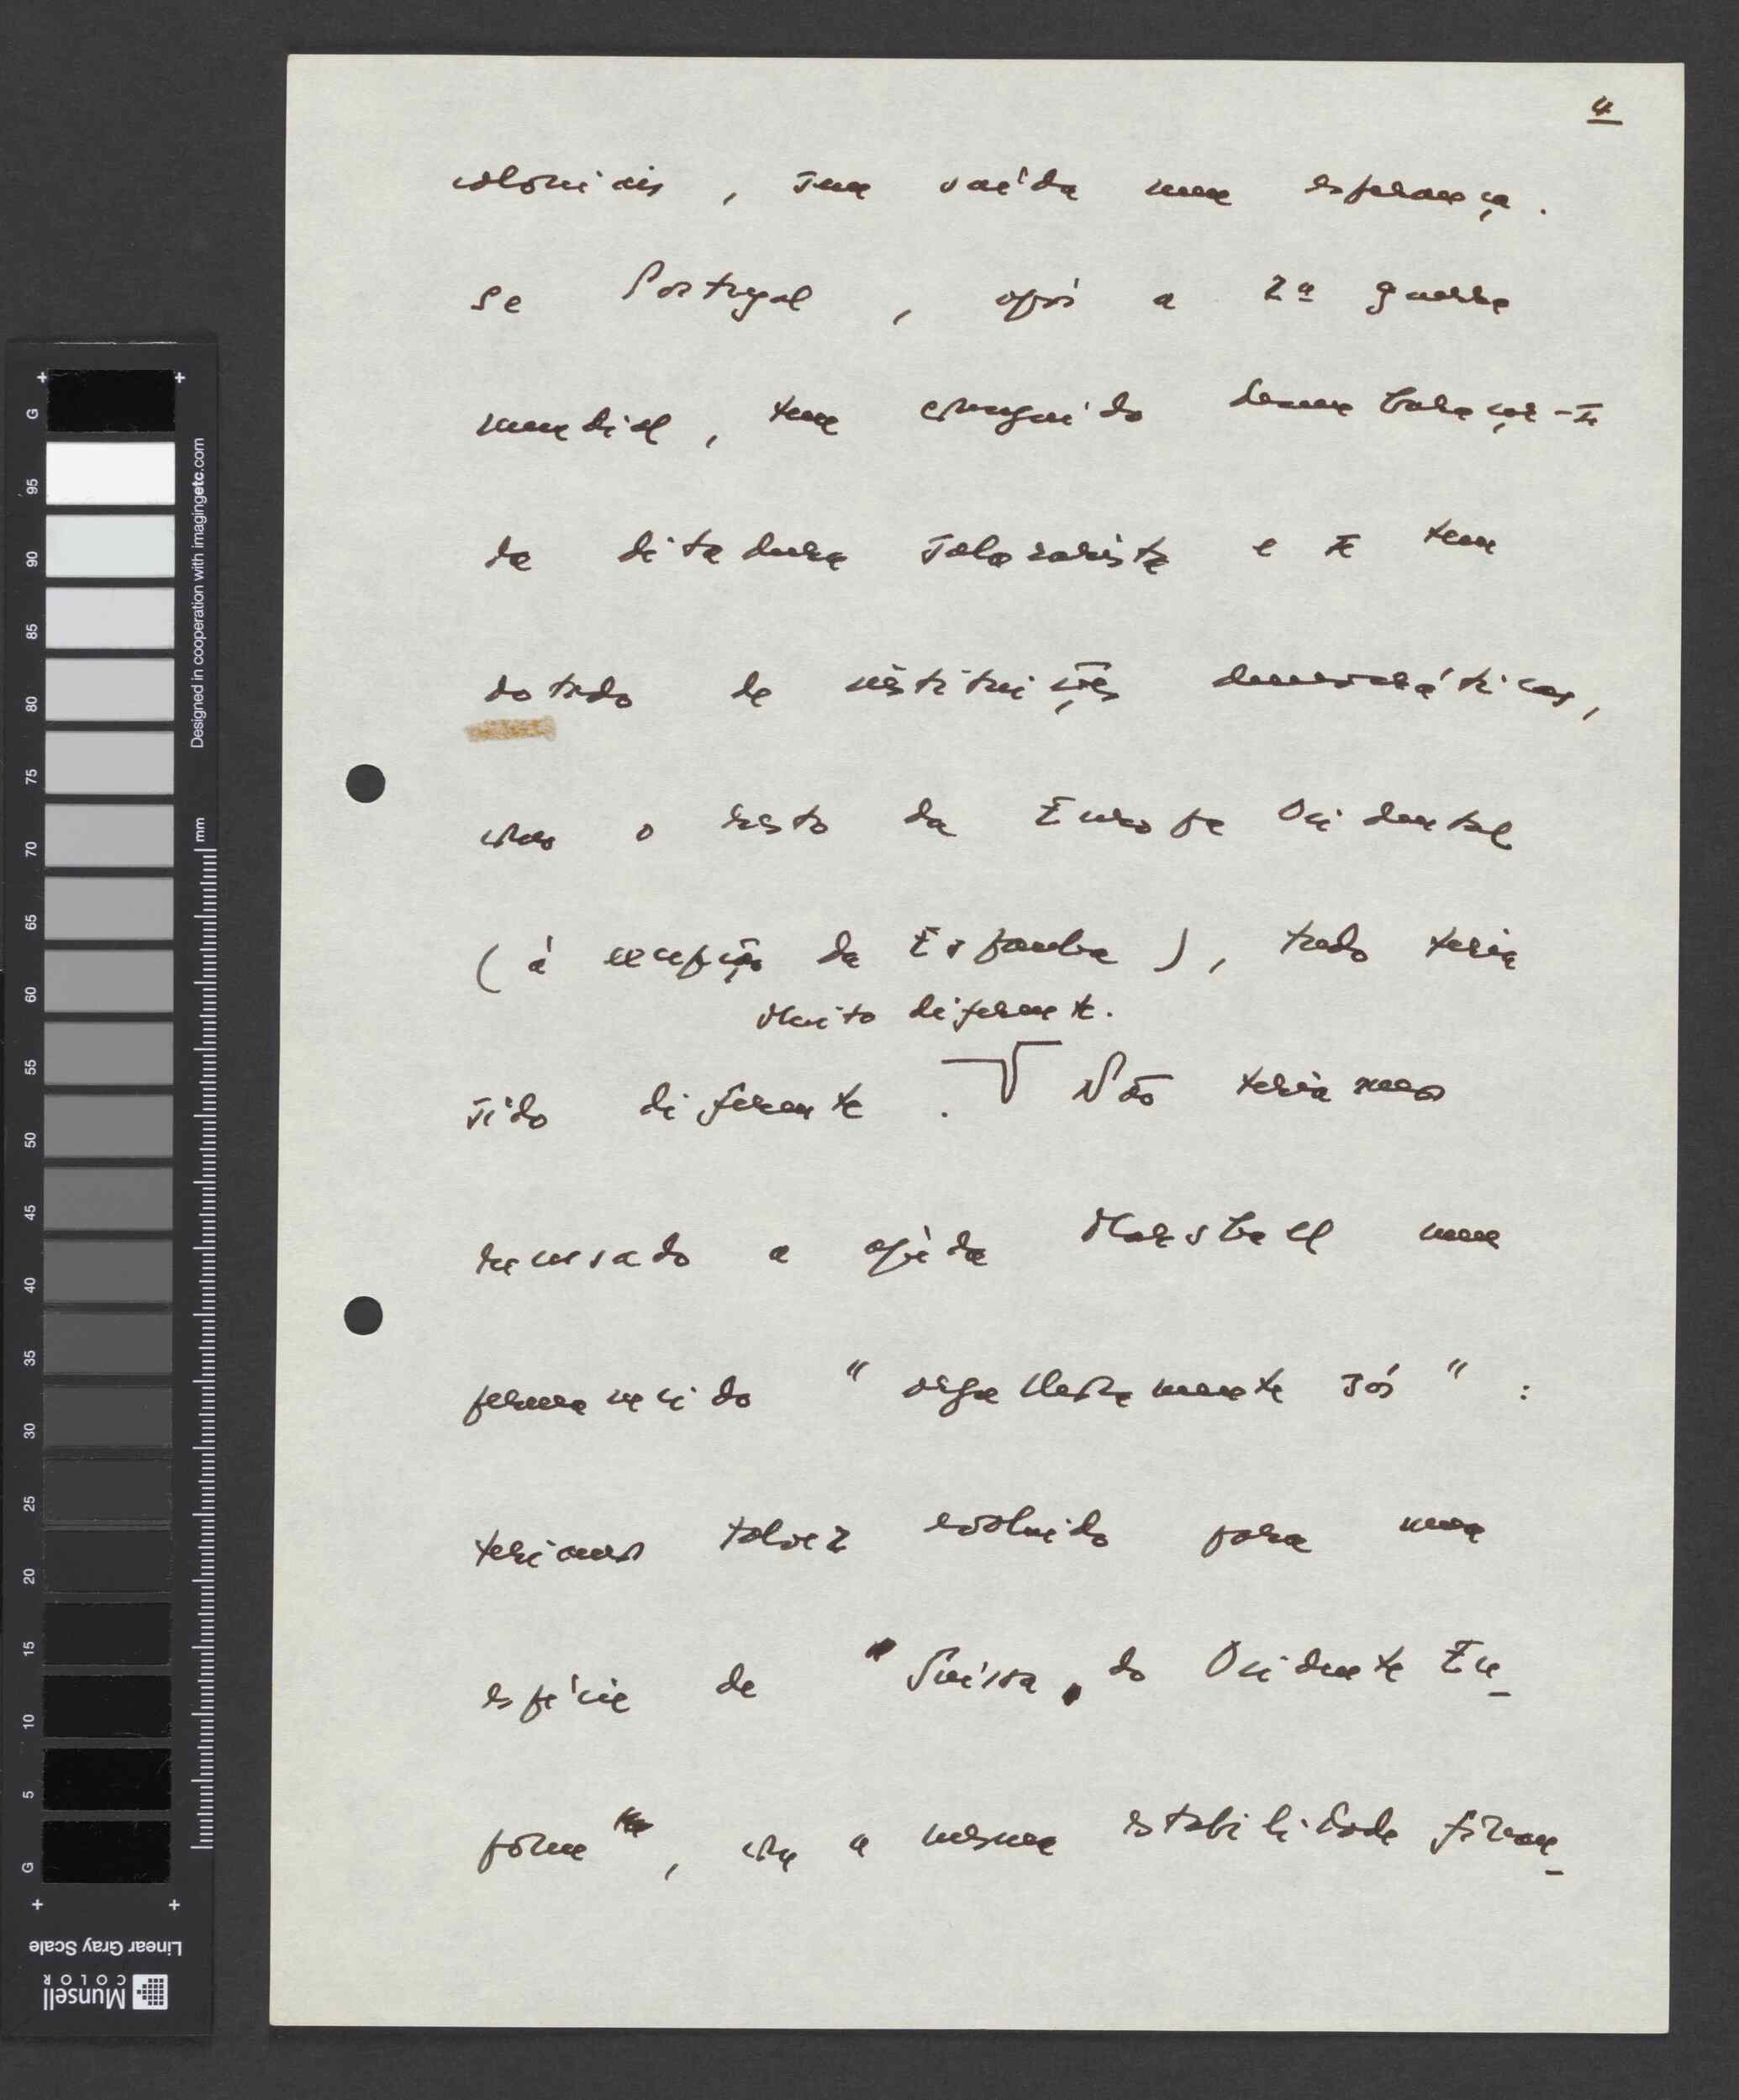 4
coloniais, sem saída nem esperança.
Se Portugal, após a 2ª guerra
mundial, tem conseguido desembaraçar-se
da ditadura salazarista e se tem
dotado de instituições democráticas,
como o resto da Europa Ocidental
(à excepção da Espanha), tudo teria
Muito diferente.
sido diferente. Não teríamos
recusado a ajuda Marshall nem
permanecido "orgulhosamente sós":
teríamos talvez evoluído para uma
espécie de "Suíssa, do Ocidente Eu-
ropeu", com a mesma estabilidade finan-
G
95
90
85
80
75
70
65
60
55
50
45
40
35
30
25
20
15
10
5
G
mm
Designed in cooperation with imagingetc.com
Linear Gray Scale
Munsell
COLOR